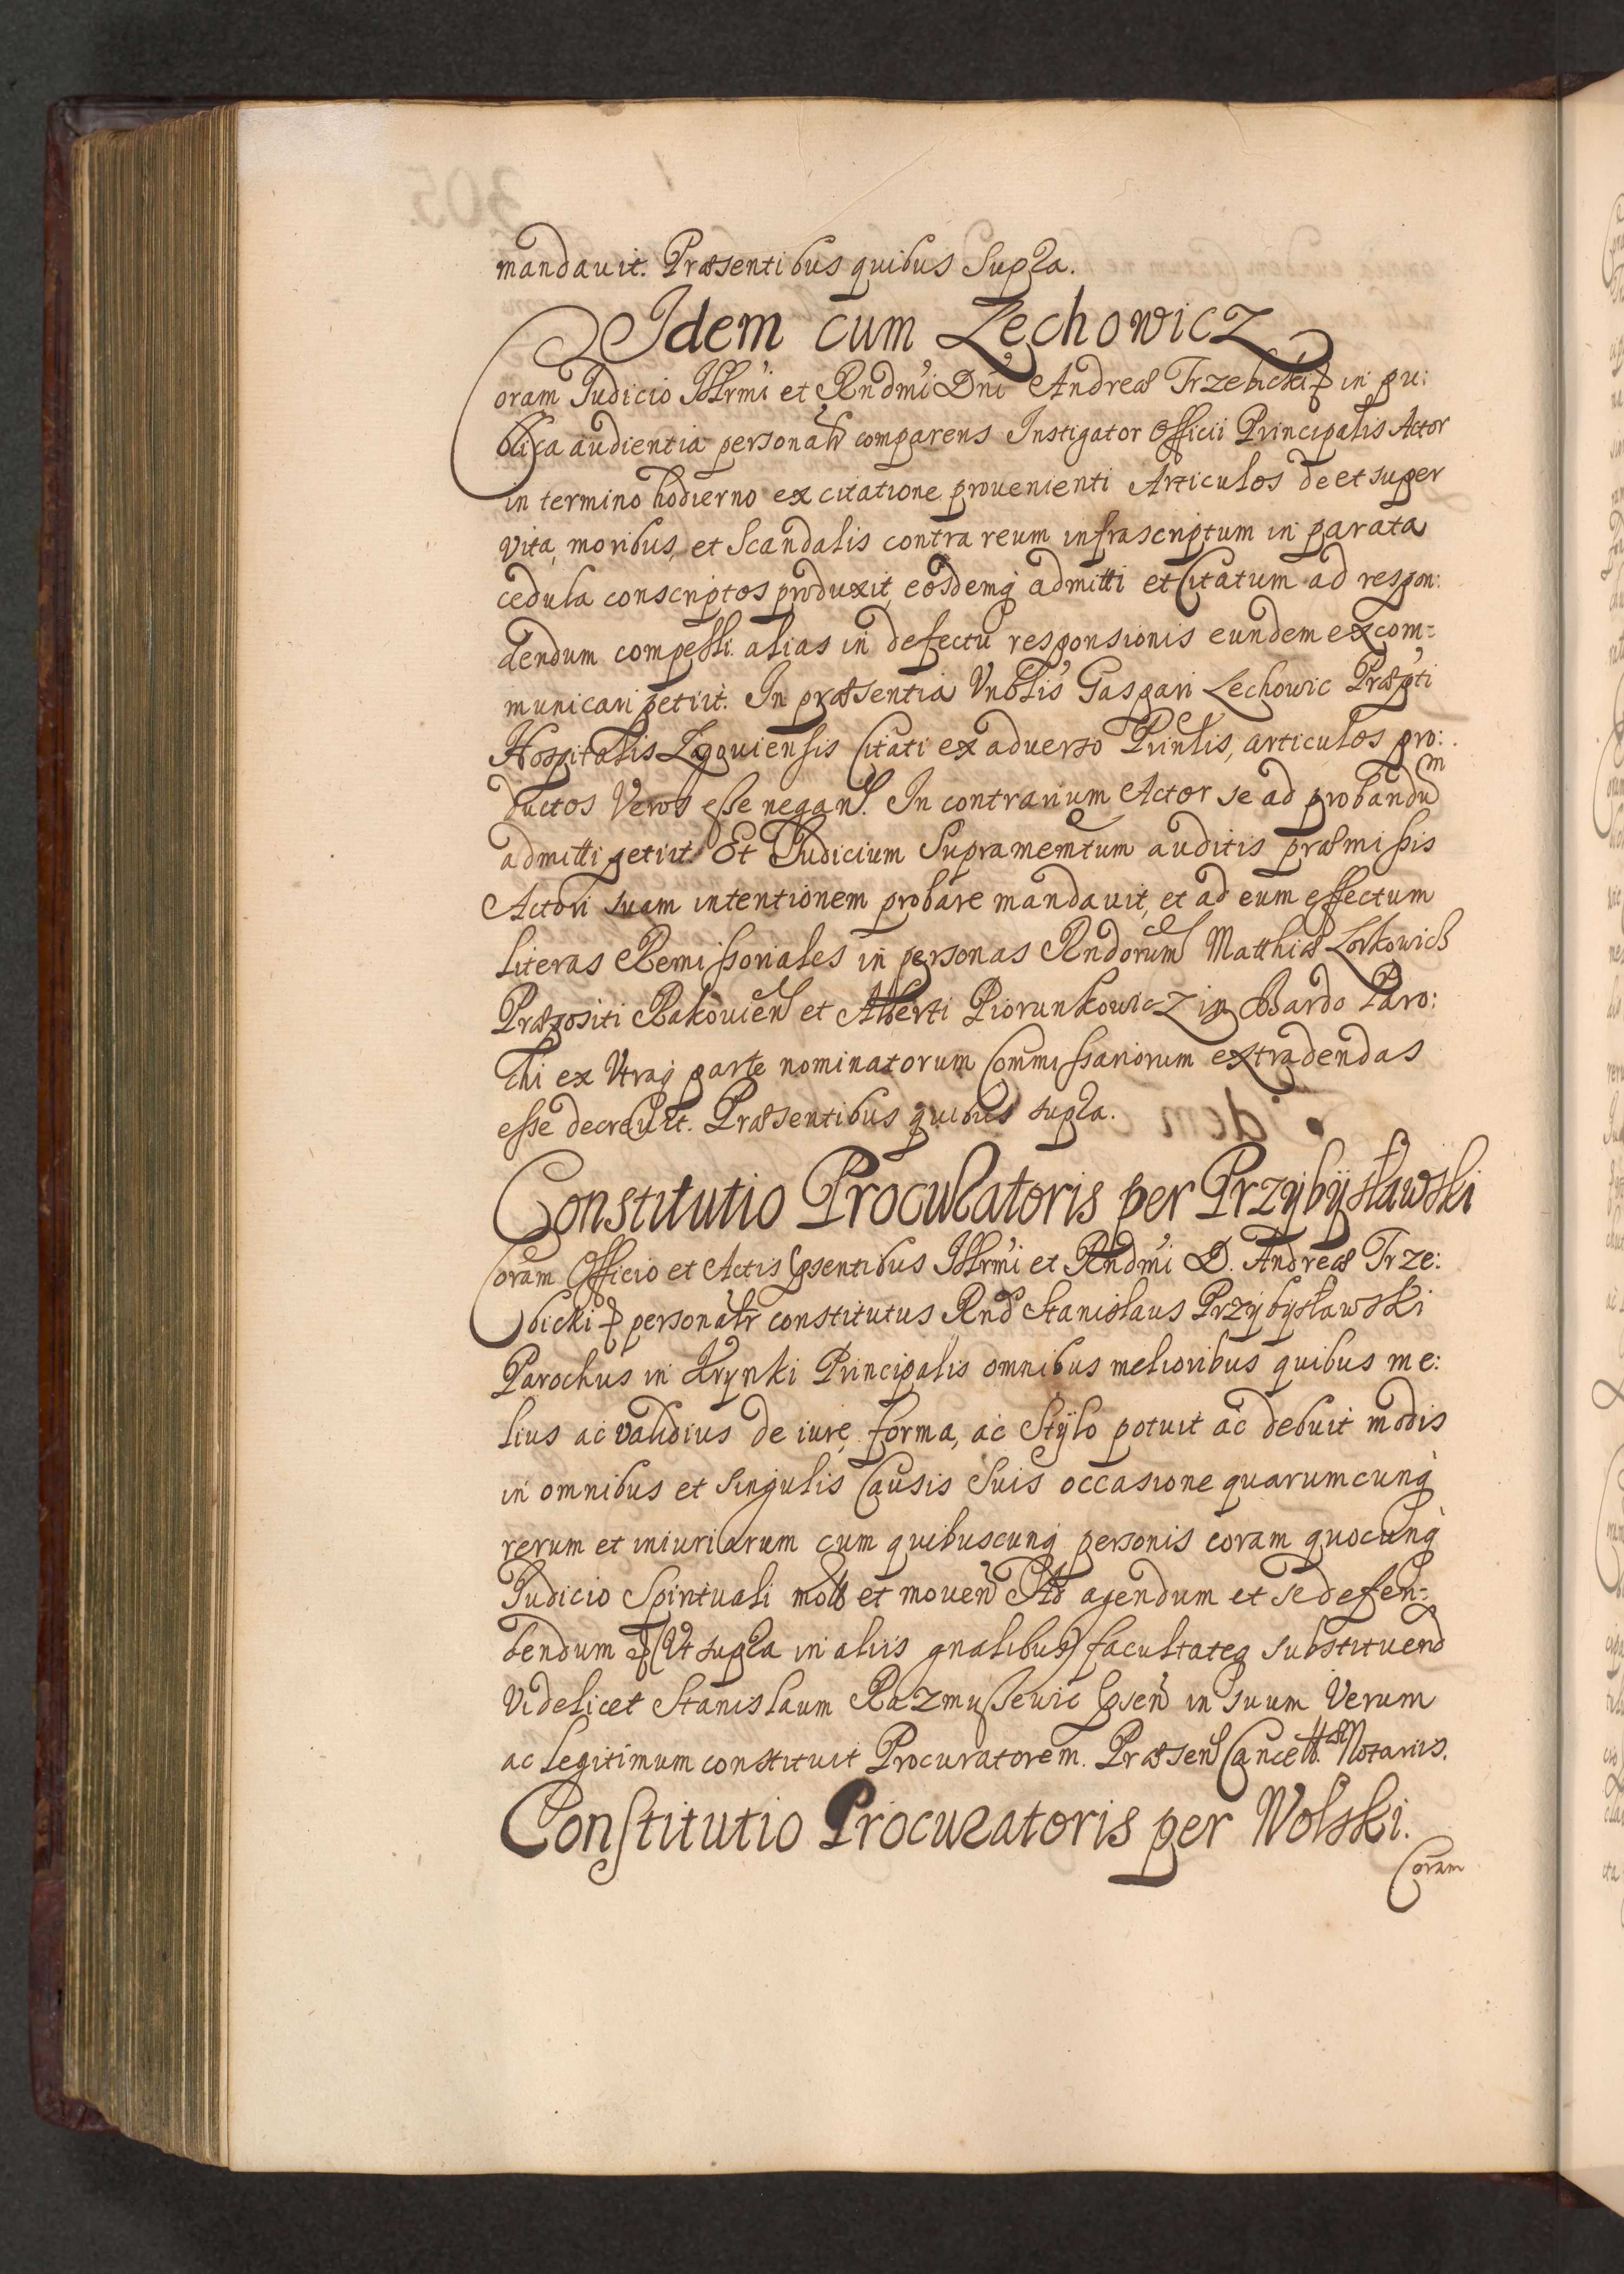 mandauit. Præsentibus quibus Supra.
Idem cum Lechowicz
Coram Judicio Illrmi et Rndmi Dni Andreæ Trzebicki in pu:
blica audientia personalr comparens Instigator Officii Principalis Actor
in termino hodierno ex citatione prouenienti Articulos de et super
vita, moribus, et Scandalis contra reum infrascriptum in parata
cedula conscriptos produxit, eosdemq admitti et Citatum ad respon:
dendum compelli. alias in defectu responsionis eundem excom=
municari petiit. In præsentia Vnblis Gaspari Lechowic Præpti
Hospitalis Citati ex aduerso Prinlis, articulos pro:
ductos Veros esse negans. In contrarium Actor se ad probandum
admitti petiit. Et Judicium Supramemtum auditis præmissis
Actori suam intentionem probare mandauit, et ad eum effectum
literas Remissoriales in personas Rndorum Matthiæ Lorkowicz
Præpositi Bakouien et Alberti Piorunkowicz in Bardo Paro:
chi ex Vtraq parte nominatorum Commissariorum extradendas
esse decreuit. Præsentibus quibus supra.
Constitutio Procuratoris per Przybysławski
Coram Officio et Actis psentibus Illrmi et Rndmi D. Andreæ Trze:
bicki personalr constitutus Rnd Stanislaus Przybysławski
Parochus in Krynki Principalis omnibus melioribus quibus me:
lius ac validius de iure, forma, ac Stÿlo potuit ac debuit modis
in omnibus et singulis Causis Suis occasione quarumcunq
rerum et iniuriarum cum quibuscunq personis coram quocunq
Judicio Spirituali mots et mouen Ad agendum et se defen=
dendum (Vt supra in aliis gnalibus) facultateq substituend
Videlicet Stanislaum Razmusewic psen in suum Verum
ac legitimum constituit Procuratorem. Præsen Cancell. Notariis.
Constitutio Procuratoris per Wolski.
Coram